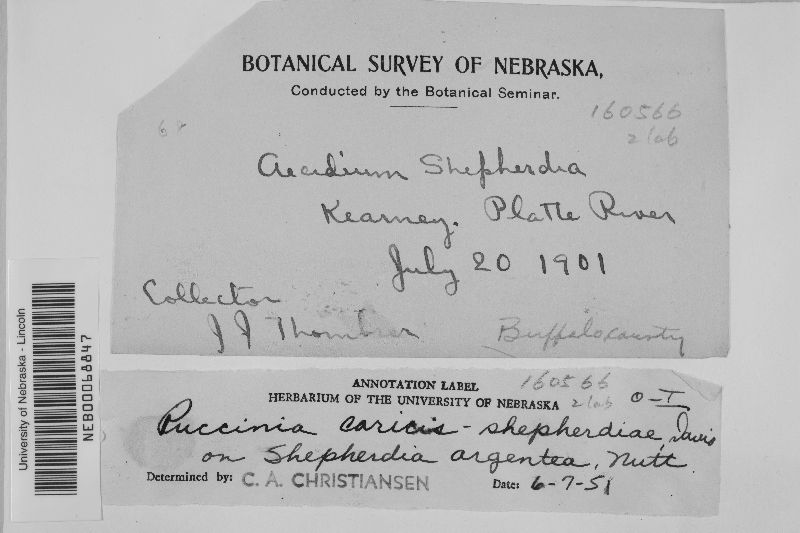 BOTANICAL SURVEY OF NEBRASKA,
Conducted by the Botanical Seminar.
160566
2 lab
68
Aecidium Shepherdia
Kearney. Platte River
July 20 1901
Collector
J J Thornber
Buffalo county
University of Nebraska - Lincoln
NEB00068847
ANNOTATION LABEL
160566
HERBARIUM OF THE UNIVERSITY OF NEBRASKA
2 lab
O-I
Puccinia caricis - shepherdiae, Davis
on Shepherdia argentea, Nutt
Determined by: C. A. CHRISTIANSEN Date: 6-7-51